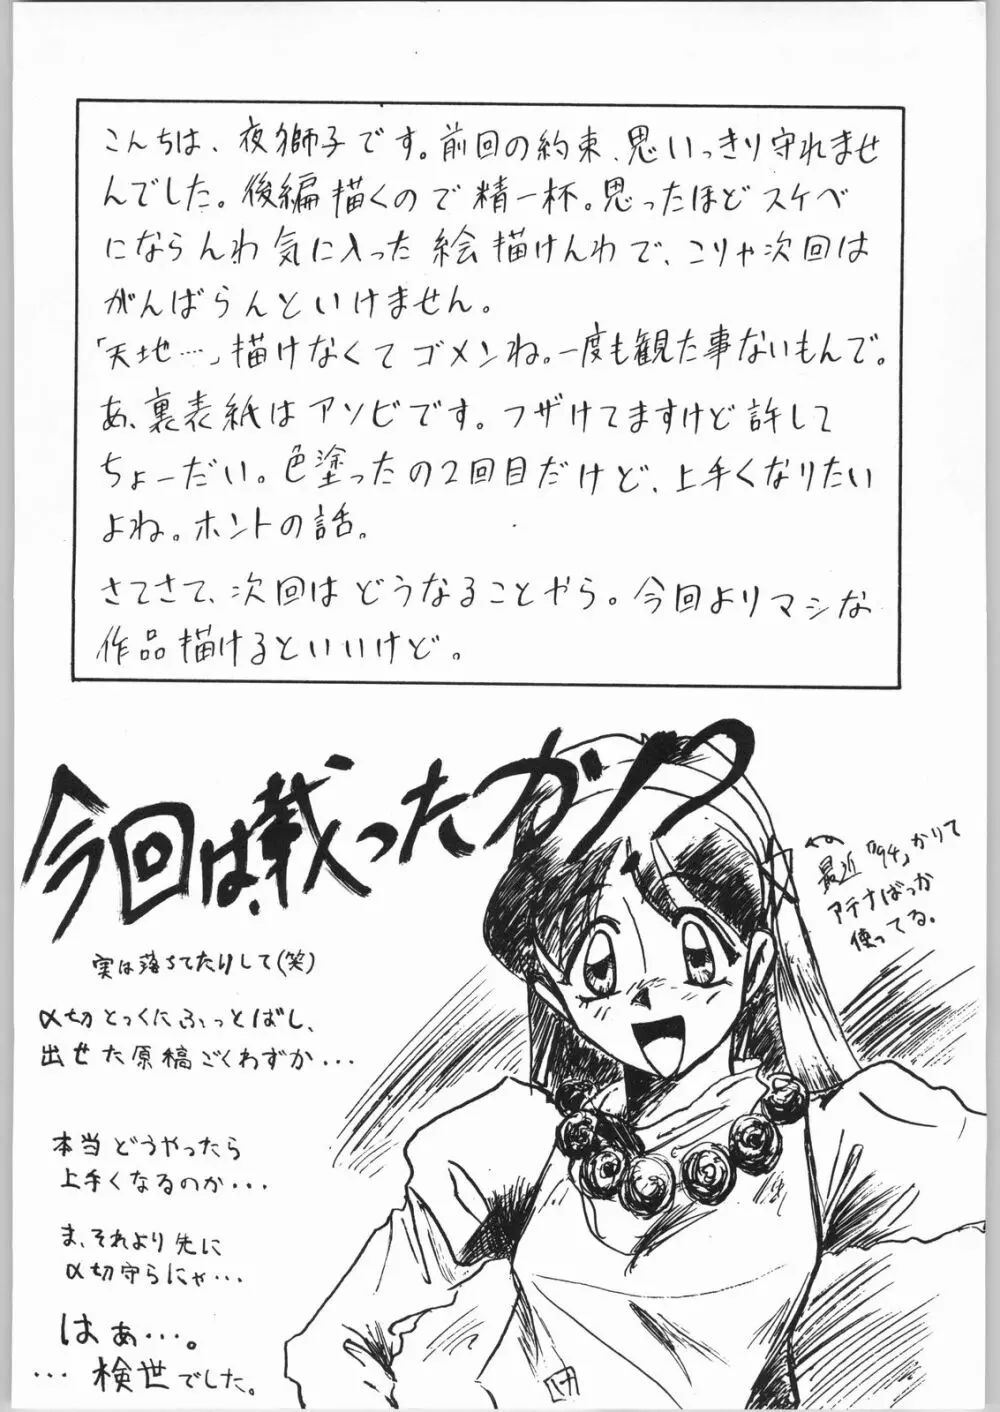 こんちは、夜獅子です。前回の約束、思いっきり守れませ
んでした。後編描くので精一杯。思ったほどスケベ
にならんわ気に入った絵描けんわで、こりゃ次回は
がんばらんといけません。
「天地…」描けなくてゴメンね。一度も観た事ないもんで。
あ、裏表紙はアソビです。フザけてますけど許して
ちょーだい。色塗ったの2回目だけど、上手くなりたい
よね。ホントの話。
さてさて、次回はどうなることやら。今回よりマシな
作品描けるといいけど。
今回は、載ったかい?
最近「94」かりて
アテナばっか
使ってる。
実は落ちてたりして(笑)
〆切とっくにふっとばし、
出せた原稿ごくわずか...
本当どうやったら
上手くなるのか...
ま、それより先に
〆切守らにゃ...
はぁ…。
...検世でした。